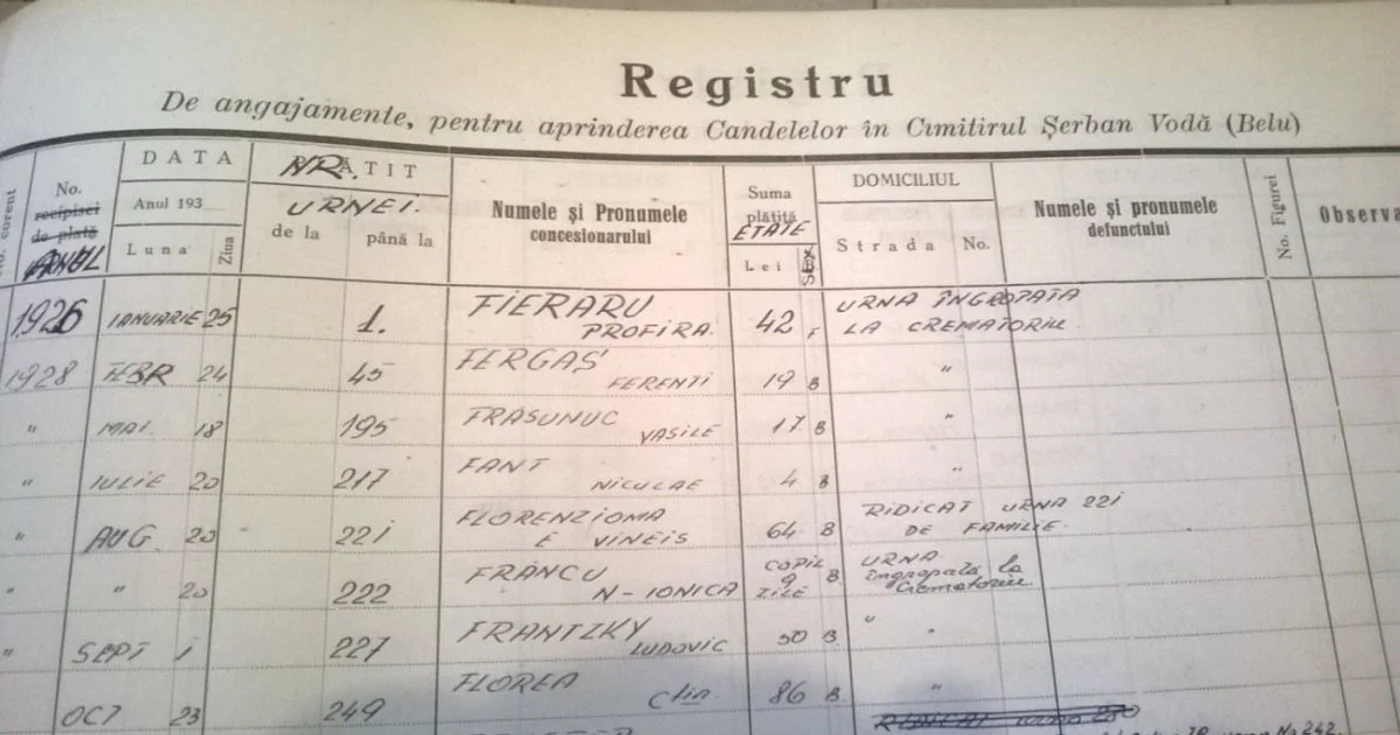 Registru
De angajamente, pentru aprinderea Candelelor în Cimitirul Șerban Vodă (Belu)
No. corent
No. recipisei de plată
DATA
Anul 193
Luna
Ziua
NR. ĂTIT
URNEI.
de la până la
Numele și Pronumele
concesionarului
Suma
plătită
ETATE
Lei
SEX
DOMICILIUL
Strada No.
Numele și pronumele
defunctului
No. Figurei
Observa
1926 IANUARIE 25 1. FIERARU PROFIRA 42 F URNA ÎNGROPATA
LA CREMATORIU
1928 FEBR 24 45 FERGAȘ FERENTI 19 B "
" MAI. 18 195 FRASUNUC VASILE 17 B "
" IULIE 20 217 FANT NICULAE 4 B "
" AUG. 20 221 FLORENZIOMA E VINEIS 64 B RIDICAT URNA 221
DE FAMILIE.
" " 20 222 FRÂNCU N-IONICA COPIL 9 ZILE B URNA
Engropată la
Crematoriu
" SEPT 1 227 FRANTZKY LUDOVIC 50 B. " "
OCT 23 249 FLOREA 86 B. "
No 242.